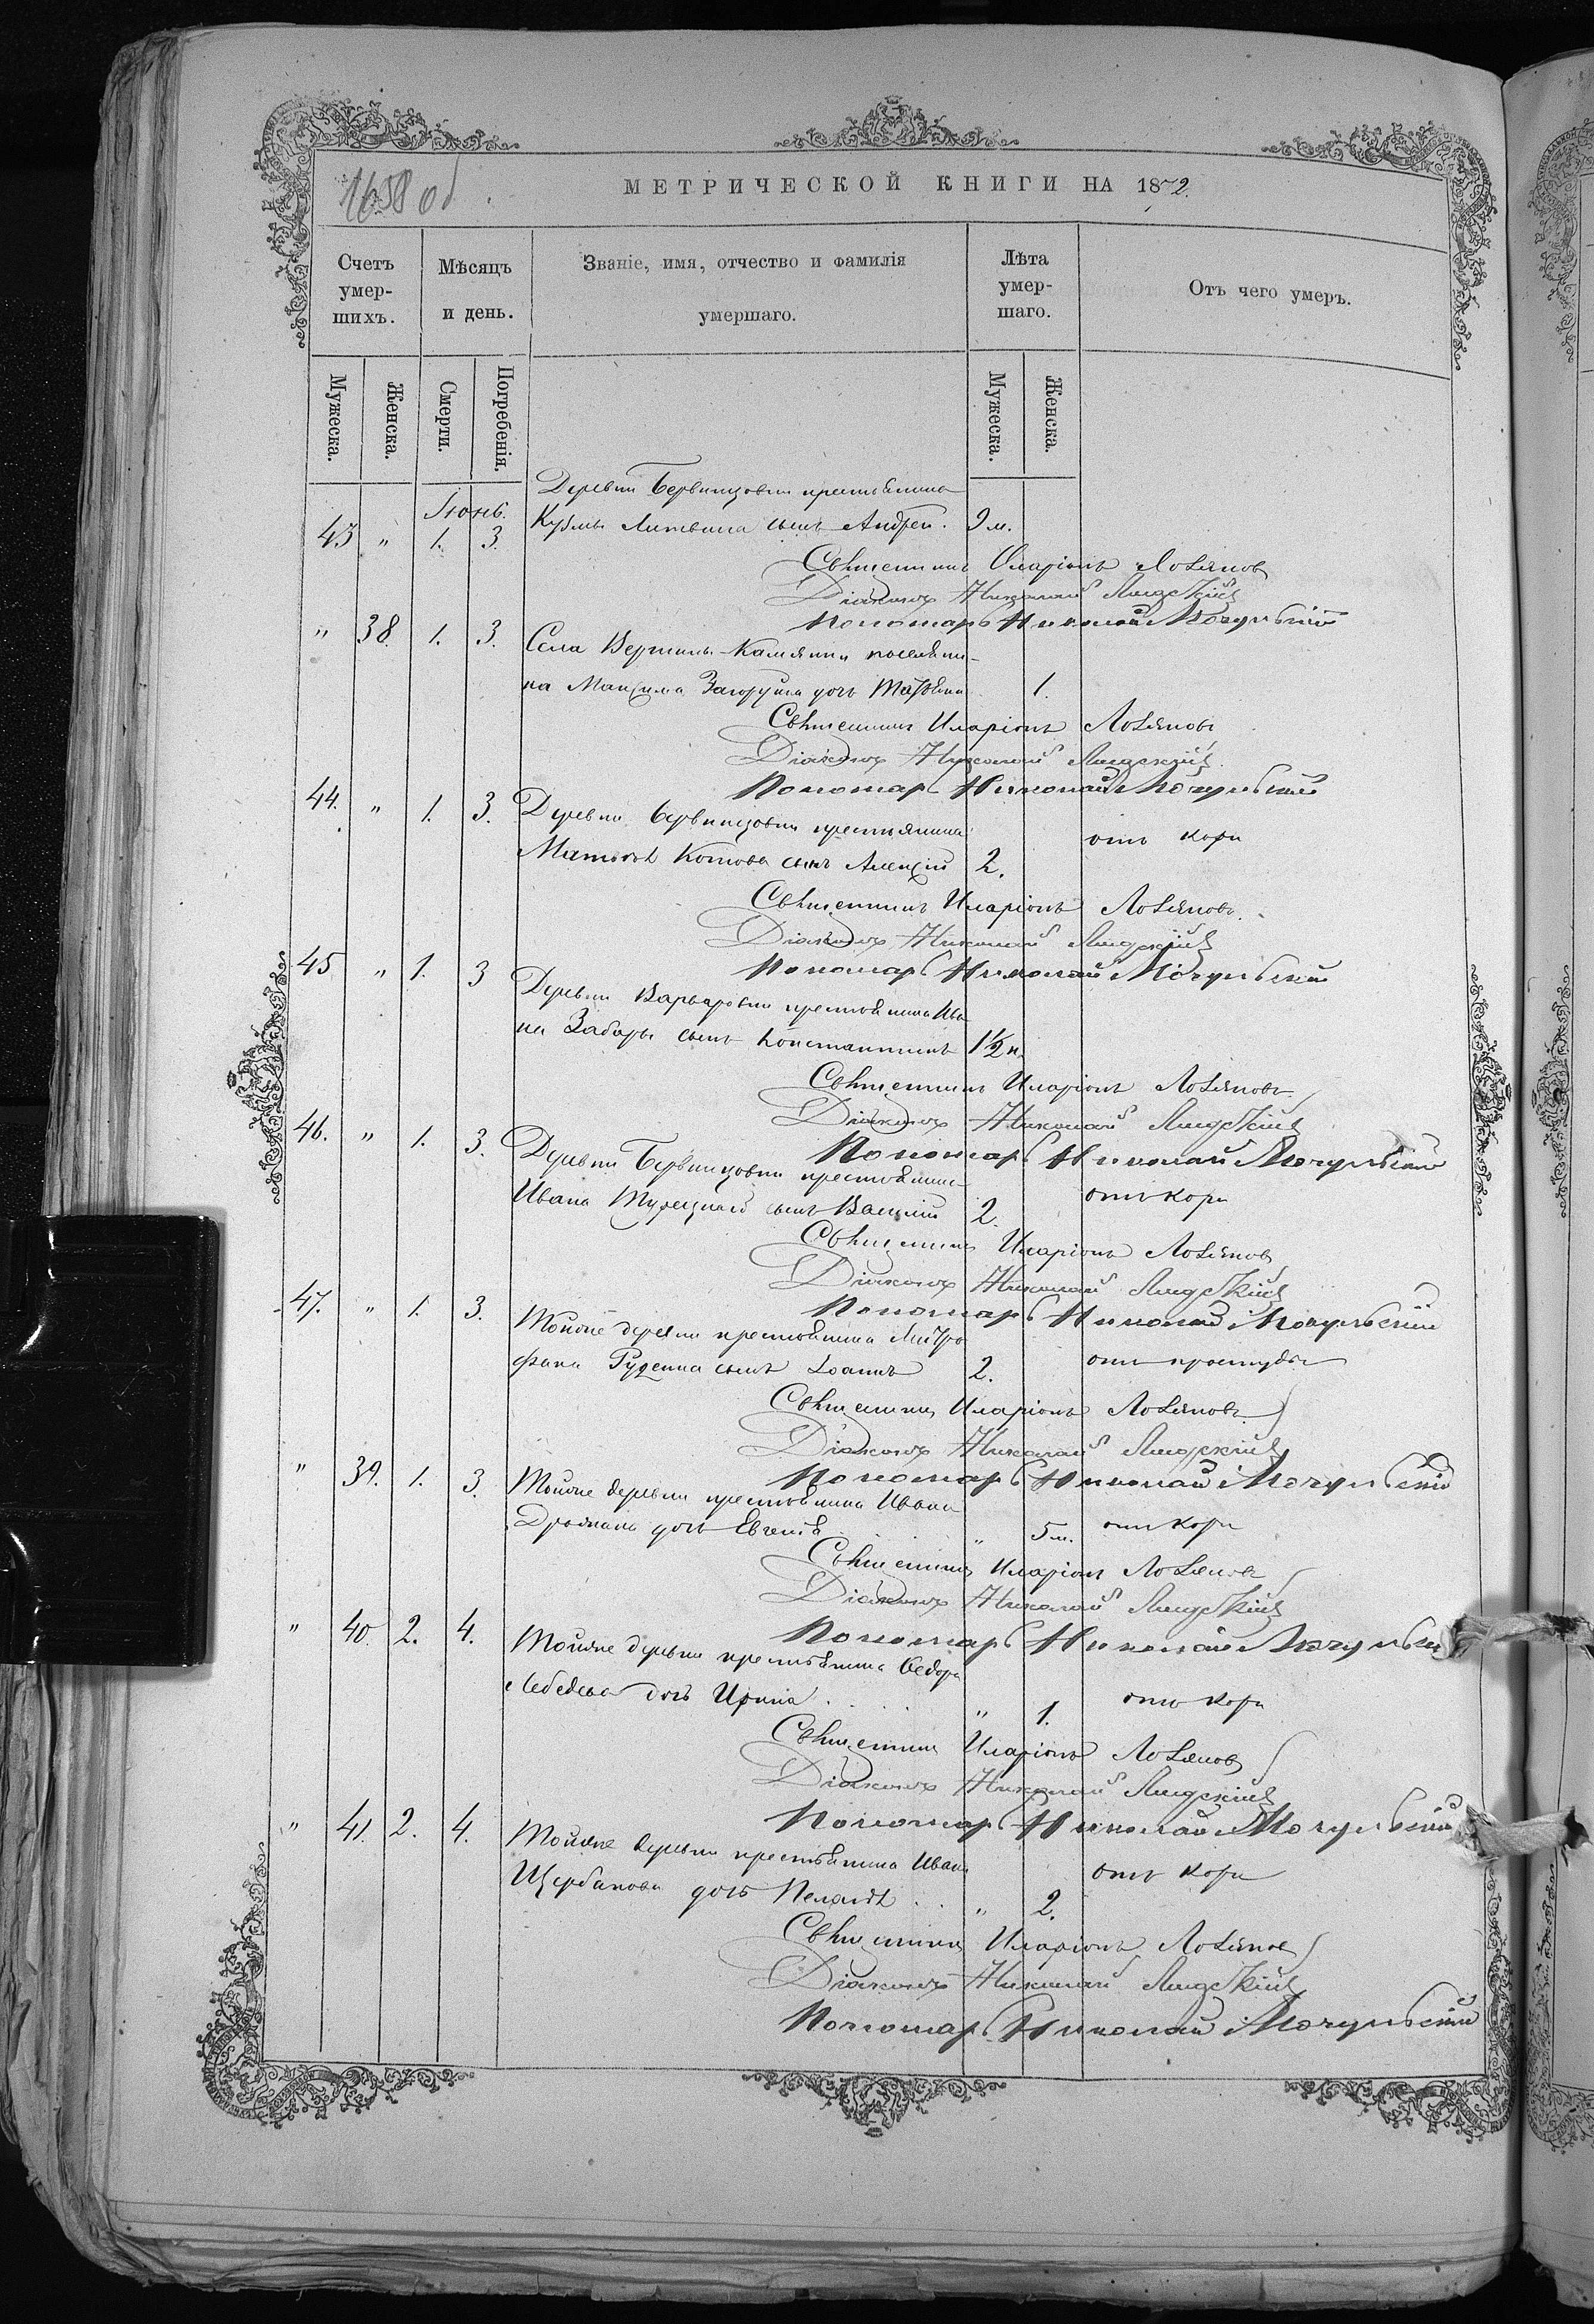 1658 об.
МЕТРИЧЕСКОЙ КНИГИ НА 1872
Счетъ умер-шихъ.
Мѣсяцъ и день.
Званіе, имя, отчество и фамилія умершаго.
Лѣта умер-шаго.
Отъ чего умеръ.
Мужеска.
Женска.
Смерти.
Погребенія.
Мужеска.
Женска.
Іюнь.
Деревни крестьянина
43 " 1. 3. Кузьмы Литвина сынъ Андрей. 9 м.
Священникъ Иларіонъ
Діаконъ Николай
Пономарь Николай Мочульскій
" 38. 1. 3. Села Верхнены-Каменки поселяни-
на Максима дочь 1.
Священникъ Иларіонъ
Діаконъ Николай
Пономарь Николай Мочульскій
44. " 1. 3. Деревни крестьянина
Матвѣя Котова сынъ Алексій 2. отъ кори
Священникъ Иларіонъ
Діаконъ Николай
Пономарь Николай Мочульскій
45 " 1. 3 Деревни Варваровки крестьянина Ива
на Забары сынъ Константинъ 1½ м.
Священникъ Иларіонъ
Діаконъ Николай
Пономарь Николай Мочульскій
46. " 1. 3. Деревни крестьянина
Ивана сынъ Василій 2. отъ кори
Священникъ Иларіонъ
Діаконъ Николай
Пономарь Николай Мочульскій
47. " 1. 3. Тойже деревни крестьянина Митро
фана Руденка сынъ Іоаннъ 2. отъ простуды
Священникъ Иларіонъ
Діаконъ Николай
Пономарь Николай Мочульскій
" 39. 1. 3. Тойже деревни крестьянина Ивана
дочь Евгенія " 5 м. отъ кори
Священникъ Иларіонъ
Діаконъ Николай
Пономарь Николай Мочульскій
" 40. 2. 4. Тойже деревни крестьянина Ѳедора
Лебедева дочь Ирина. " 1. отъ кори
Священникъ Иларіонъ
Діаконъ Николай
Пономарь Николай Мочульскій
" 41. 2. 4. Тойже деревни крестьянина Ивана
Щербакова дочь Пелагія " 2. отъ кори
Священникъ Иларіонъ
Діаконъ Николай
Пономарь Николай Мочульскій